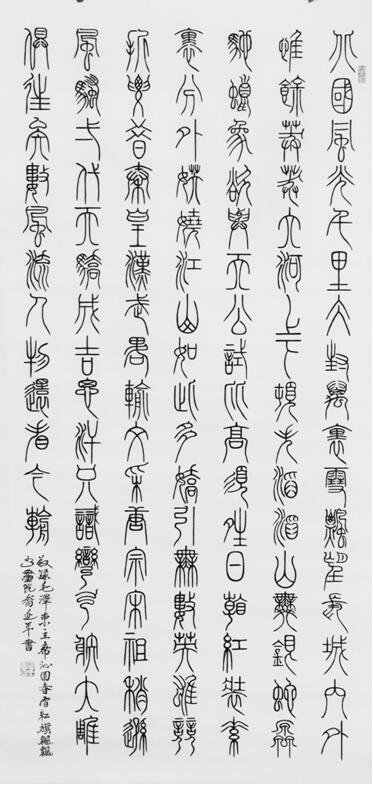 北國風光千里冰封萬裏雪飄望長城內外
惟餘莽莽大河上下頓失滔滔山舞銀蛇原
馳蠟象欲與天公試比高須晴日看紅裝素
裹分外妖嬈江山如此多嬌引無數英雄競
折腰惜秦皇漢武略輸文采唐宗宋祖稍遜
風騷一代天驕成吉思汗只識彎弓射大雕
俱往矣數風流人物還看今朝
敬録毛澤東主席沁園春雪紅旗飄飄
書畫院書